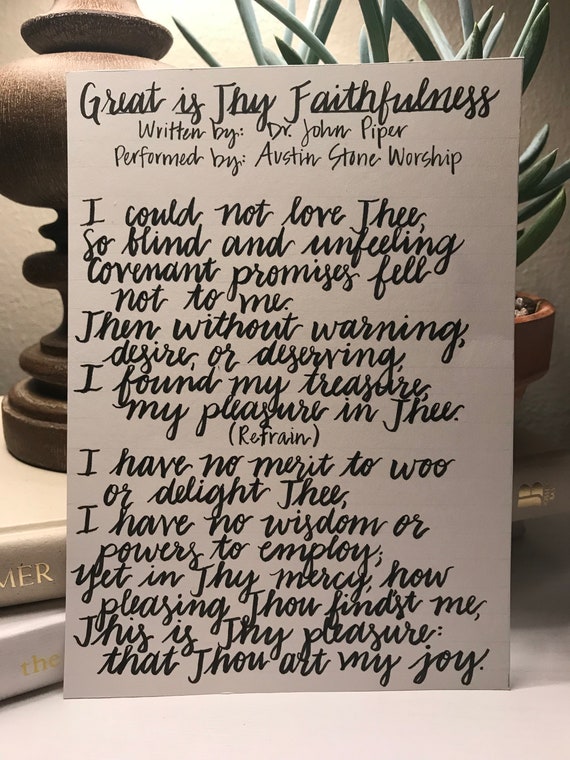 Great is Thy Faithfulness
Written by: Dr. John Piper
Performed by: Austin Stone Worship
I could not love Thee,
So blind and unfeeling
Covenant promises fell
not to me.
Then without warning,
desire, or deserving,
I found my treasure,
my pleasure in Thee.
(Refrain)
I have no merit to woo
or delight Thee,
I have no wisdom or
powers to employ;
Yet in Thy mercy, how
pleasing Thou find'st me,
This is Thy pleasure:
that Thou art my joy.
MER
the